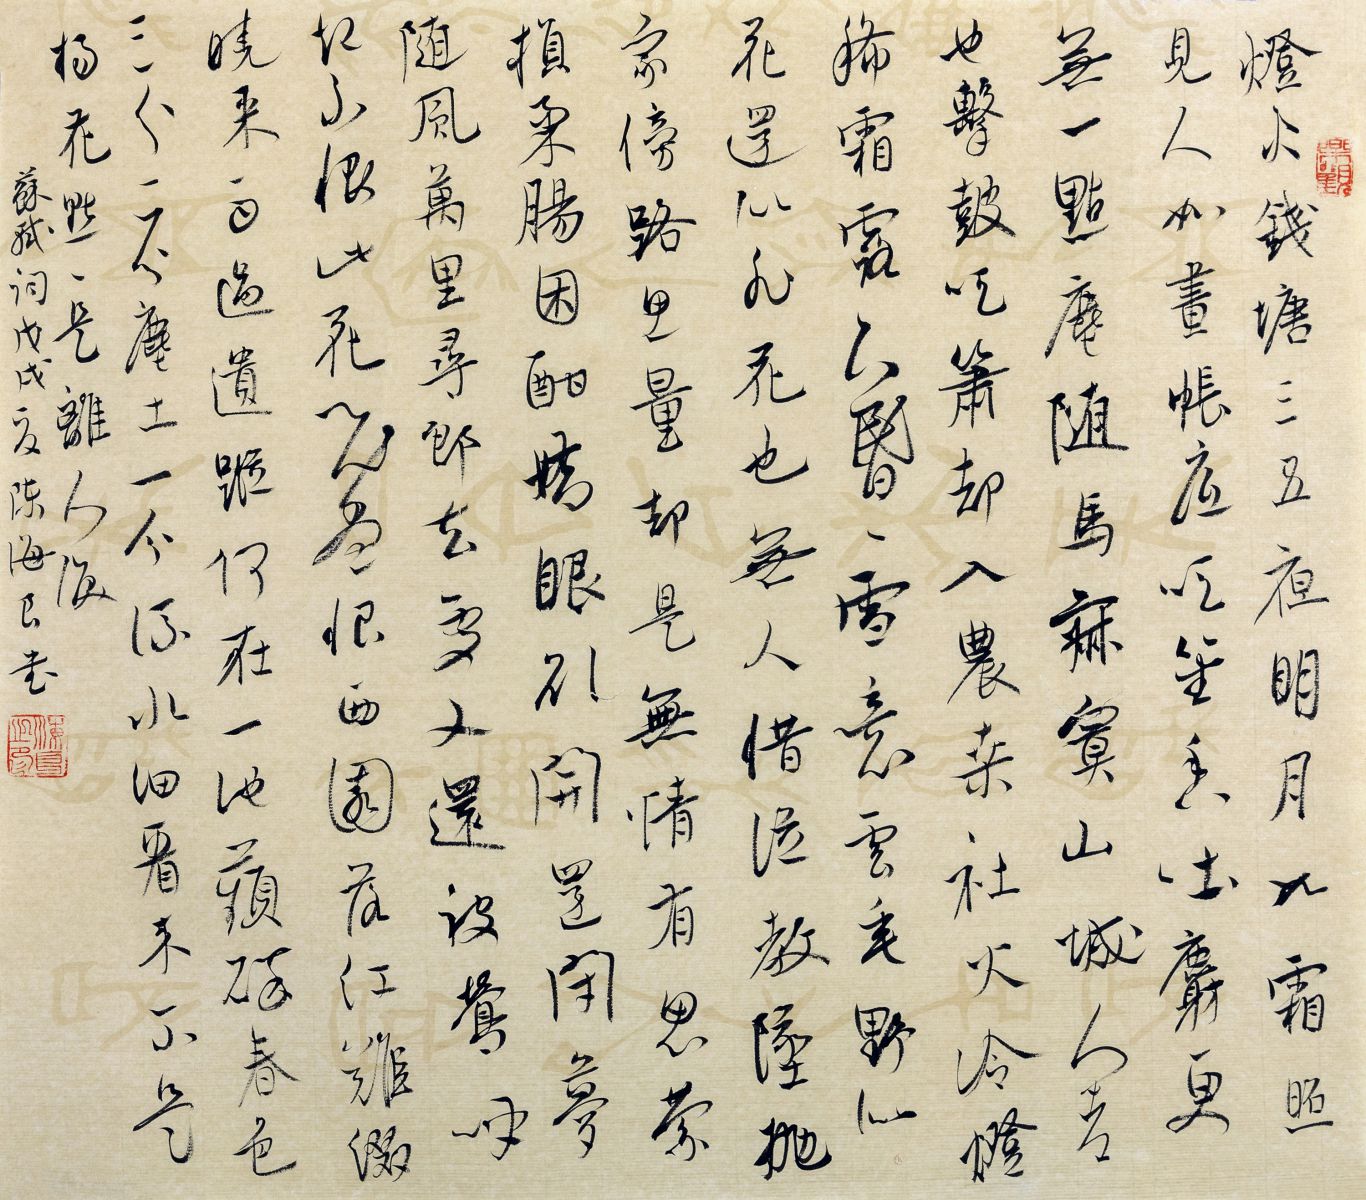 燈火錢塘三五夜明月如霜照
見人如畫帳底吹笙香吐麝更
無一點塵随馬寂寞山城人老
也擊鼓吹簫却入農桑社火冷燈
稀霜露下昏昏雪意雲垂野似
花還似非花也無人惜從教墜抛
家傍路思量却是無情有思縈
損柔腸困酣嬌眼欲開還閉夢
随風萬里尋郎去處又還被鶯呼
起不恨此花飛盡恨西園落紅難綴
曉来雨過遺蹤何在一池蘋碎春色
三分二分塵土一分流水細看来不是
楊花點點是離人淚
蘇軾詞戊戌夏陳海良書